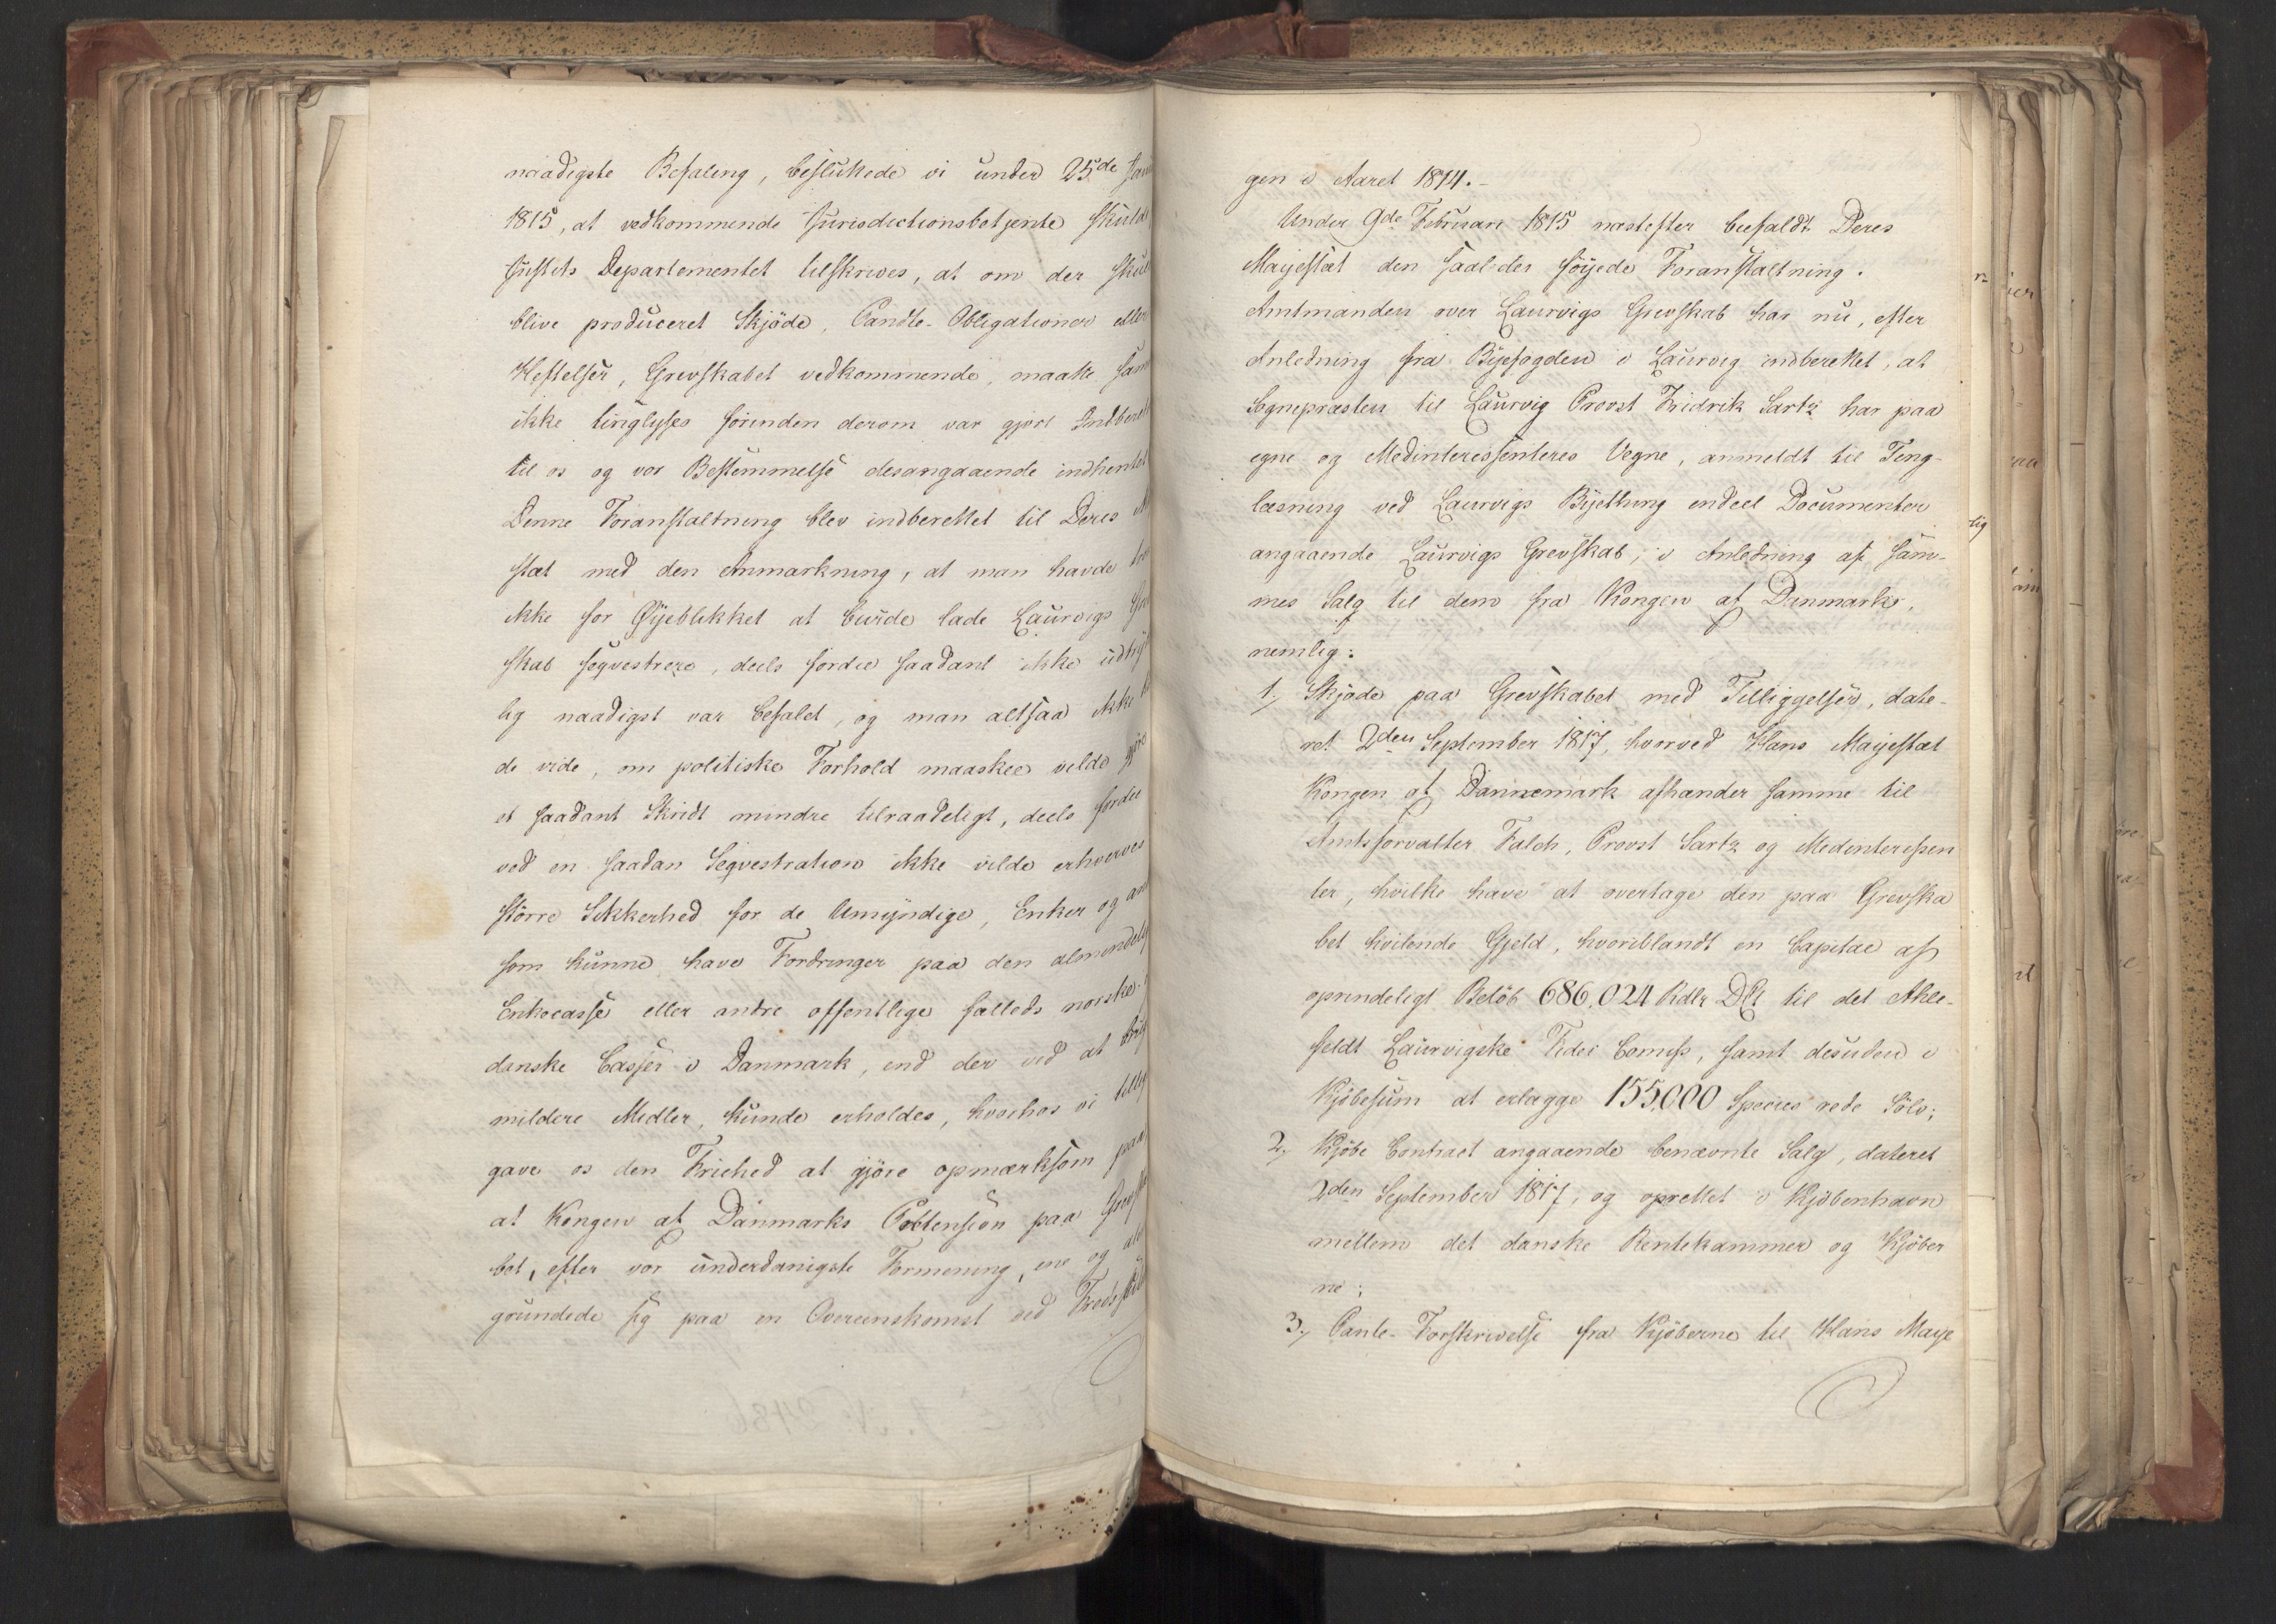 naadigste Befaling, besluttede vi under 25de
1815, at vedkommende Jurisdictionsbetjente skuld
Justits Departementet tilskrives, at om der skul
blive produceret Skjöde, Pandte-Obligationer eller
Heftelser, Grevskabet vedkommende, maatte sam
ikke tinglyses förinden derom var gjort Indberet
til os og vor Bestemmelse desangaaende indhentet
Denne Foranstaltning blev indberettet til Deres
stæt med den Anmærkning, at man havde
ikke for Øyeblikket at burde lade Laurvigs Grev
skab seqvestrere, deels fordie saadant ikke udtryk
lig naadigst var befalet, og man altsaa ikke
de vide, om politiske Forhold maaskee vilde gjöre
et saadant Skridt mindre tilraadeligt, deels fordie
ved en saadan Seqvestration ikke vilde erhverves
större Sikkerhed for de Umyndige, Enker og an
som kunne have Fordringer paa den almindelig
Enkecasse eller andre offentlige fælleds norske-
danske Casser i Danmark, end der ved at
mildere Midler, kunde erholdes, hvorhos vi tillig
gave os den Friehed at gjöre opmærksom paa
at Kongen af Danmarks Prætension paa Grevska
bet, efter vor underdanigste Formening, ene og ale
grundede sig paa en Overeenskomst ved
gen i Aaret 1814.-
Under 9de Februari 1815 næstefter biefaldt Deres
Mayestæt den saaledes föyede Foranstaltning.
Amtmanden over Laurvigs Grevskab har nu, efter
Anledning fra Byefogden i Laurvig indberettet, at
Sognepræsten til Laurvig Provst Fridrik Sartz har paa
egne og Medinteressenteres Vegne, anmeldt til Ting-
læsning ved Laurvigs Byething endeel Documenter
angaaende Laurvigs Grevskab, i Anledning af sam-
mes Salg til dem fra Kongen af Danmark,
nemlig:
1, Skjöde paa Grevskabet med Tilliggelser, date-
ret 2den September 1817, hvorved Hans Mayestæt
Kongen af Dannemark afhænder samme til
Amtsforvalter Falch, Provst Sartz og Medinteressen
ter, hvilke have at overtage den paa Grevska
bet hvilende Gjeld, hvoriblandt en Capital af
oprindeligt Belöb 686,024 Rdlr DC til det Ahle-
feldt Laurvigske Fidei Comiss, samt desuden i
Kjöbesum at erlægge 155,000 Species rede Sölv;
2, Kjöbe Contract angaaende benævnte Salg, dateret
2den September 1817, og oprettet i Kjöbenhavn
mellem det danske Rentekammer og Kjöber
ne;
3, Pante-Forskrivelse fra Kjöberne til Hans Maye